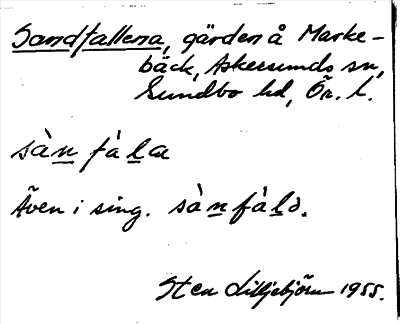 Sandfallena, gärden å Marke-
bäck, Askersunds sn,
Sundbo hd, Ör. l.
sàn fàla
Även i sing. sàn fàlə.
Sten Lilljebjörn 1955.